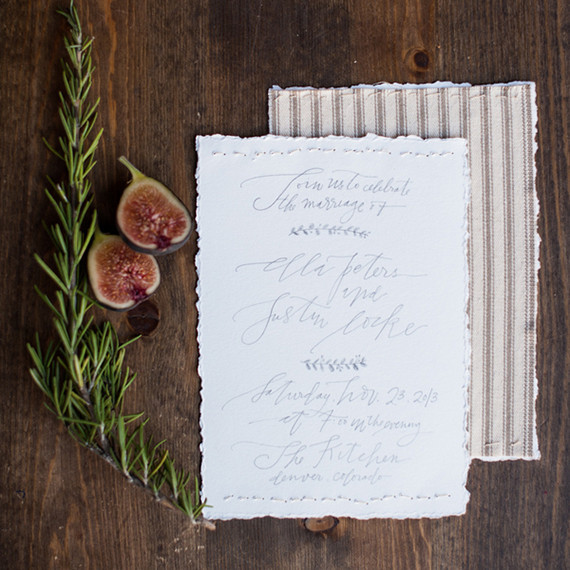 Join us to celebrate
the marriage of
ella peters
and
Justin locke
Saturday, Nov. 23. 2013
at 7:00 in the evening
The Kitchen
denver, colorado